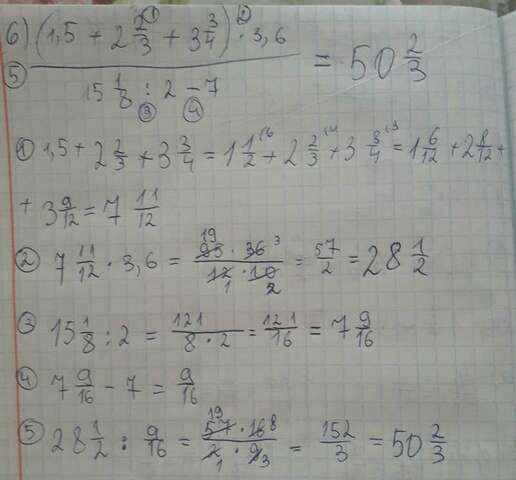 6) (1,5 + 2 2/3 + 3 3/4) · 3,6
① ②
15 1/8 : 2 − 7
③ ④
⑤
= 50 2/3
① 1,5 + 2 2/3 + 3 3/4 = 1 1/2 \6 + 2 2/3 \4 + 3 3/4 \3 = 1 6/12 + 2 8/12 +
+ 3 9/12 = 7 11/12
② 7 11/12 · 3,6 = 95 · 36 / 12 · 10 = 57/2 = 28 1/2
19 3 1 2
③ 15 1/8 : 2 = 121 / 8 · 2 = 121/16 = 7 9/16
④ 7 9/16 − 7 = 9/16
⑤ 28 1/2 : 9/16 = 57 · 16 / 2 · 9 = 152/3 = 50 2/3
19 8 1 3